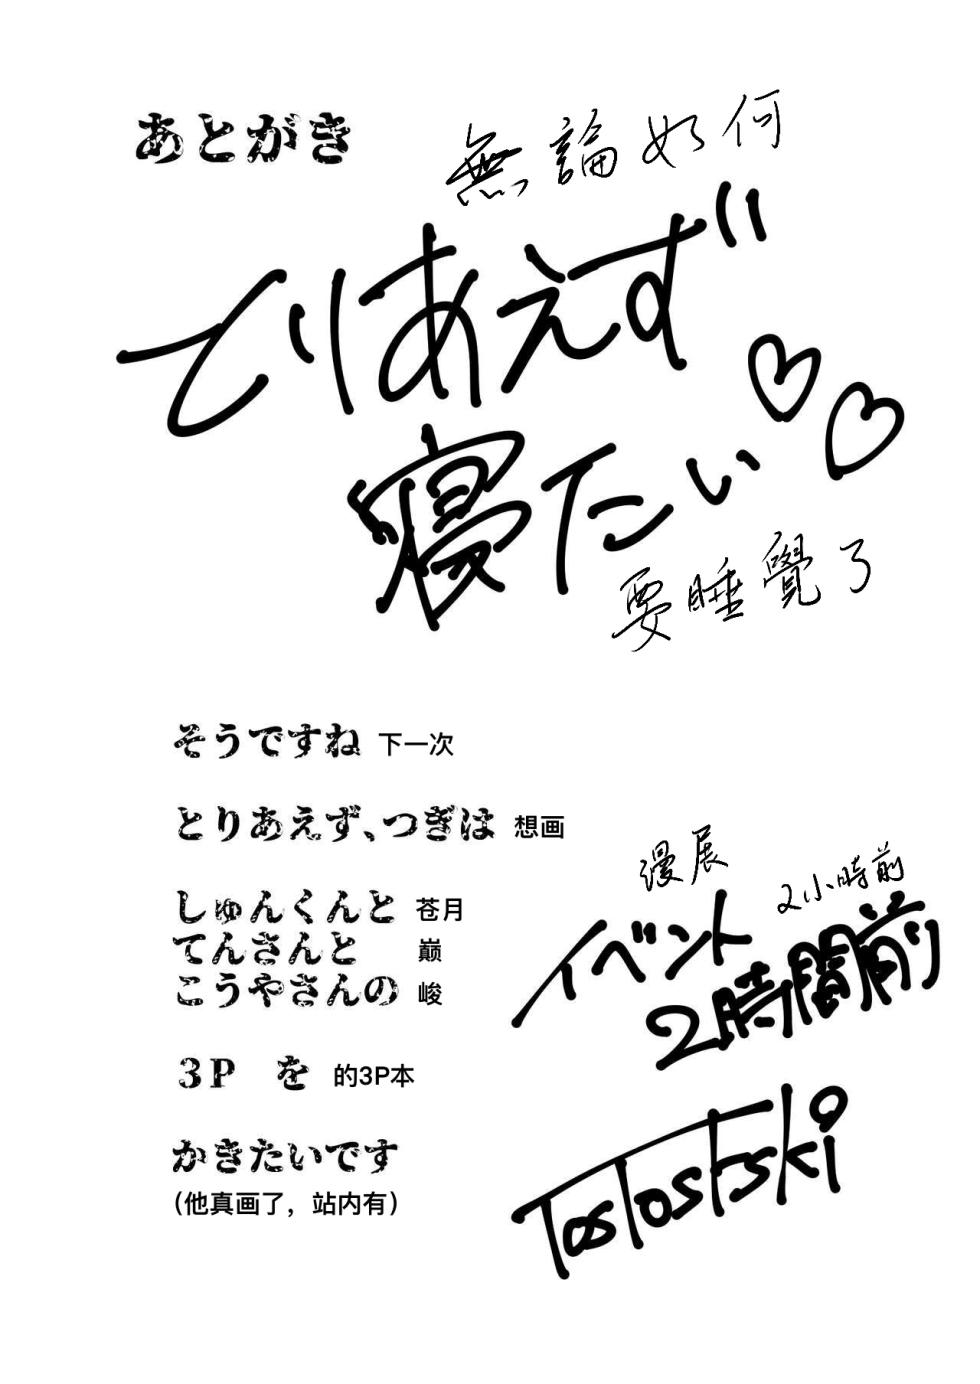 あとがき
無論如何
とりあえず
寝たい♡♡
要睡覺了
そうですね 下一次
とりあえず、つぎは 想画
しゅんくんと 苍月
てんさんと 巅
こうやさんの 峻
3P を 的3P本
かきたいです
（他真画了，站内有）
漫展
2小時前
イベント
2時間前
TosTostski